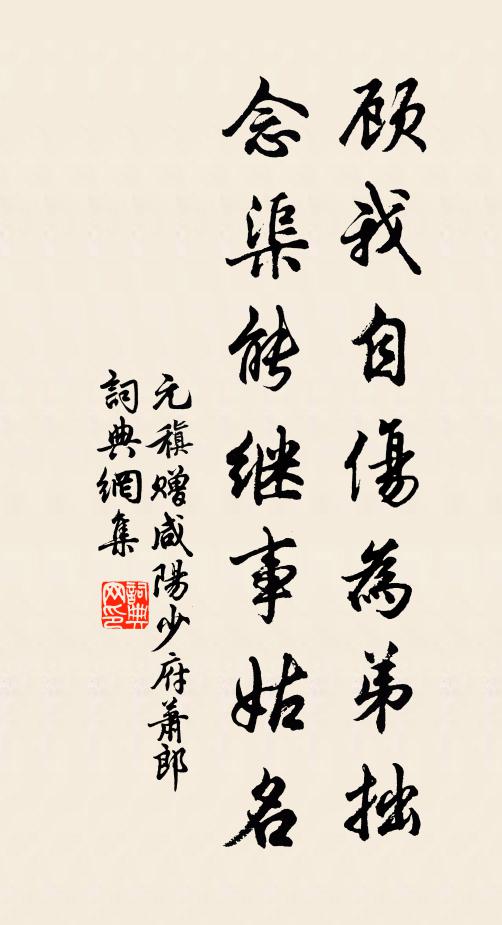 顾我自傷為弟拙
念渠能继事姑名
元稹赠咸陽少府蕭郎
詞典網集
詞典网印